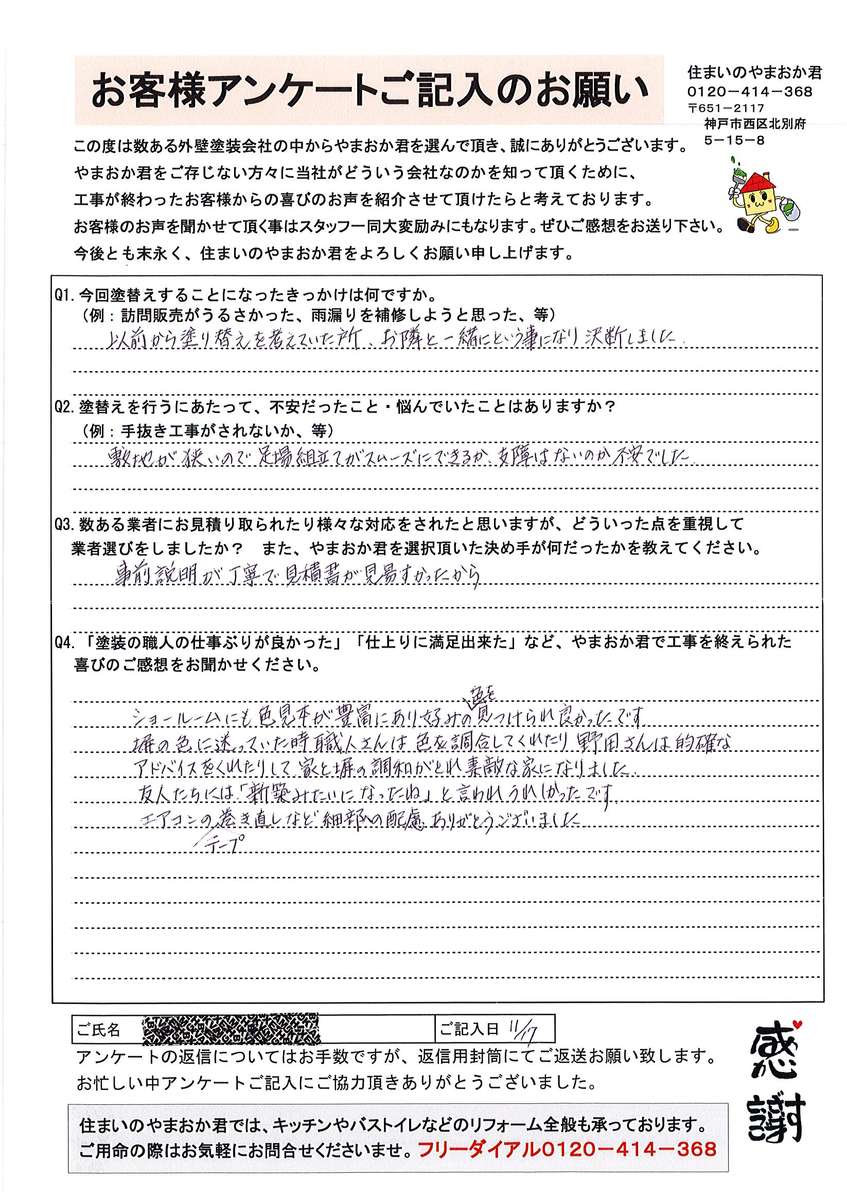 お客様アンケートご記入のお願い
住まいのやまおか君
0120-414-368
〒651-2117
神戸市西区北別府
5-15-8
この度は数ある外壁塗装会社の中からやまおか君を選んで頂き、誠にありがとうございます。
やまおか君をご存じない方々に当社がどういう会社なのかを知って頂くために、
工事が終わったお客様からの喜びのお声を紹介させて頂けたらと考えております。
お客様のお声を聞かせて頂く事はスタッフ一同大変励みにもなります。ぜひご感想をお送り下さい。
今後とも末永く、住まいのやまおか君をよろしくお願い申し上げます。
Q1. 今回塗替えすることになったきっかけは何ですか。
（例：訪問販売がうるさかった、雨漏りを補修しようと思った、等）
以前から塗り替えを考えていた所、お隣と一緒にという事になり決断しました.
Q2. 塗替えを行うにあたって、不安だったこと・悩んでいたことはありますか？
（例：手抜き工事がされないか、等）
敷地が狭いので足場組立てがスムーズにできるか、支障はないのか不安でした.
Q3. 数ある業者にお見積り取られたり様々な対応をされたと思いますが、どういった点を重視して
業者選びをしましたか？ また、やまおか君を選択頂いた決め手が何だったかを教えてください。
事前説明が丁寧で見積書が見易すかったから
Q4. 「塗装の職人の仕事ぶりが良かった」「仕上りに満足出来た」など、やまおか君で工事を終えられた
喜びのご感想をお聞かせください。
ショールームにも色見本が豊富にあり好みの色を見つけられ良かったです
塀の色に迷っていた時職人さんは色を調合してくれたり野田さんは的確な
アドバイスをくれたりして家と塀の調和がとれ素敵な家になりました.
友人たちには「新築みたいになったね」と言われうれしかったです.
エアコンのテープ巻き直しなど細部への配慮ありがとうございました
ご氏名
ご記入日 11/17
アンケートの返信についてはお手数ですが、返信用封筒にてご返送お願い致します。
お忙しい中アンケートご記入にご協力頂きありがとうございました。
感謝
住まいのやまおか君では、キッチンやバストイレなどのリフォーム全般も承っております。
ご用命の際はお気軽にお問合せくださいませ。フリーダイアル0120-414-368